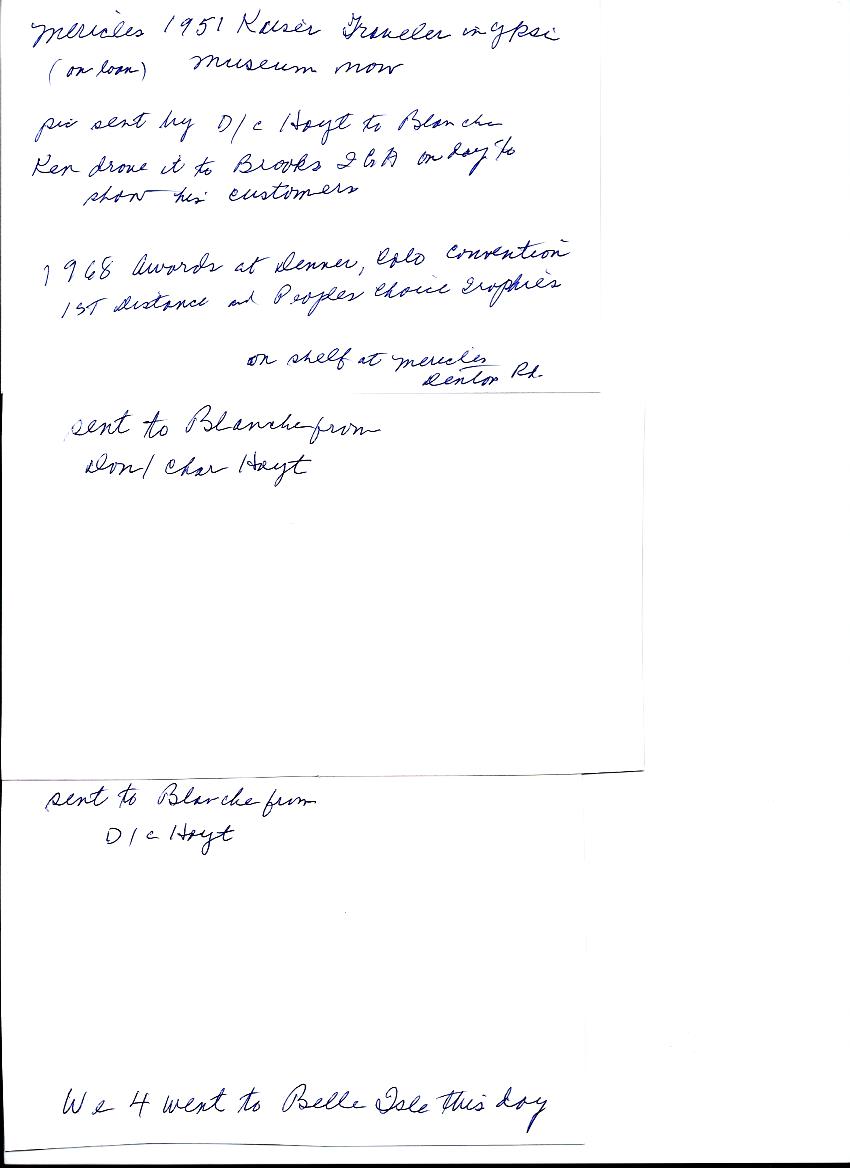 Mericles 1951 Kaiser Traveler in Ypsi
(on loan) Museum now
pic sent by D/c Hoyt to Blanche
Ken drove it to Brooks IGA on day to
show his customers
1968 Awards at Denver, Colo Convention
1ST Distance and Peoples Choice Trophies
on shelf at Mericles
Denton Rd.
sent to Blanche from
Don/ Char Hoyt
sent to Blanche from
D/c Hoyt
We 4 went to Belle Isle this day